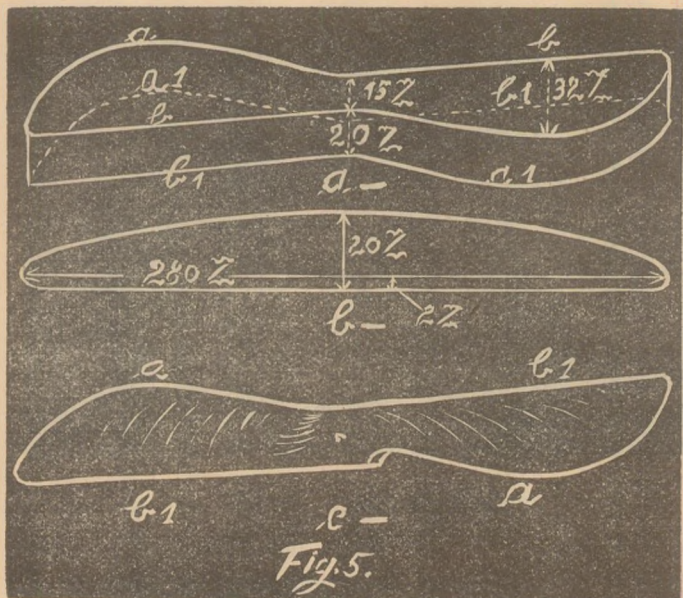 a b
a1 15Z b1 32Z
b
20Z
b1 a1
a -
20Z
280 Z
2Z
b -
a b1
b1 a
c -
Fig. 5.